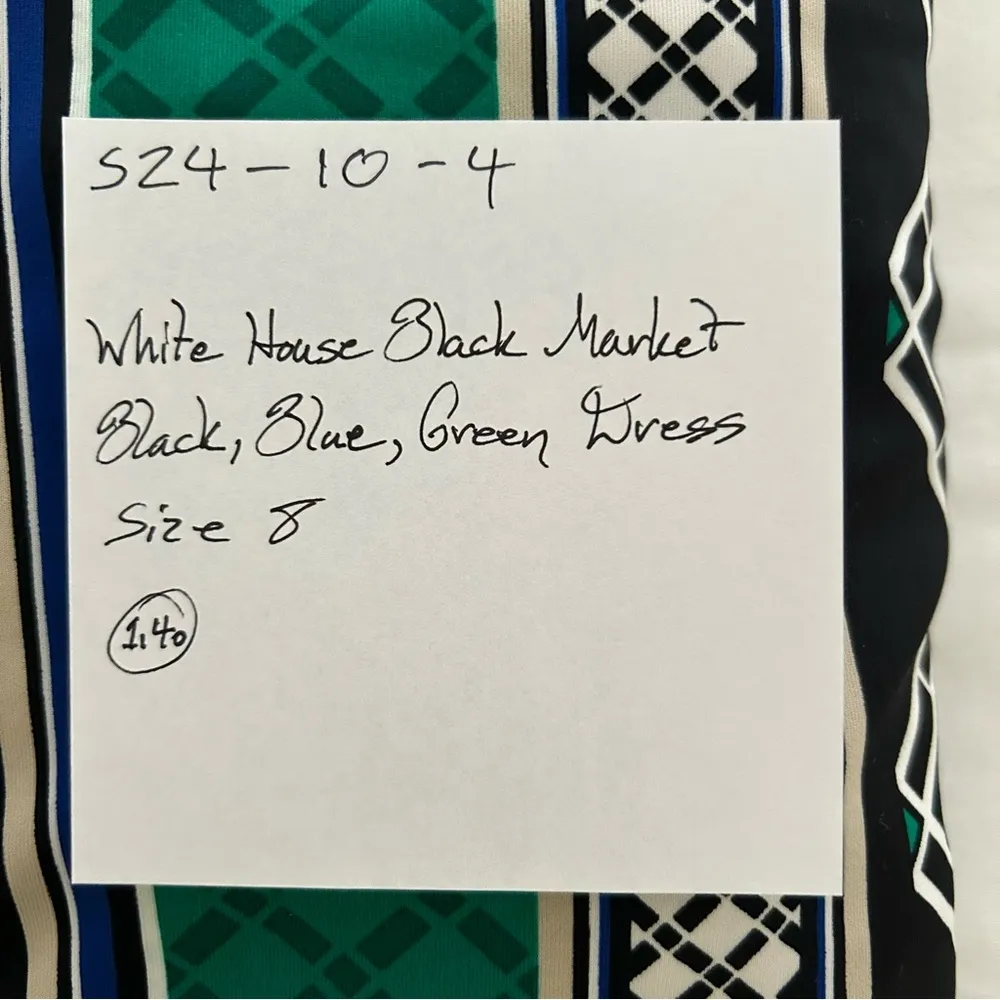 S24-10-4
White House Black Market
Black, Blue, Green Dress
Size 8
1.40